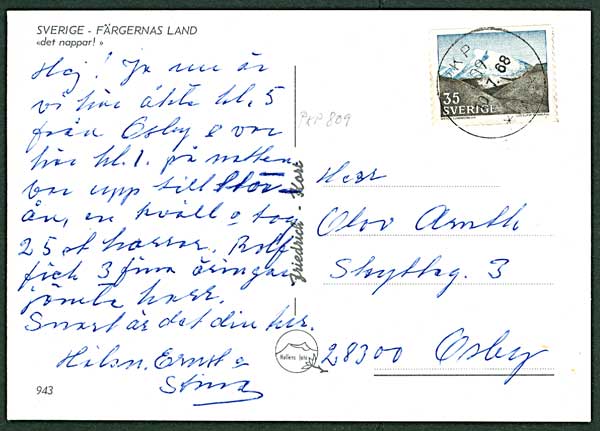 SVERIGE - FÄRGERNAS LAND
«det nappar! »
Hej! Ja nu är
vi här åkte kl. 5
från Osby o var
här kl. 1. på natten
var upp till Stör-
ån, en kväll o tog
25 st harrar. Rolf
fick 3 fina öringar
jämte harr.
Snart är det din tur.
Hilsn. Ernst o
Stina
943
PKP 809
Friedrich - Kort
Hallens foto
PKP
809
7. 68
35
SVERIGE
Herr
Olov Arnth
Skytteg. 3
28300 Osby